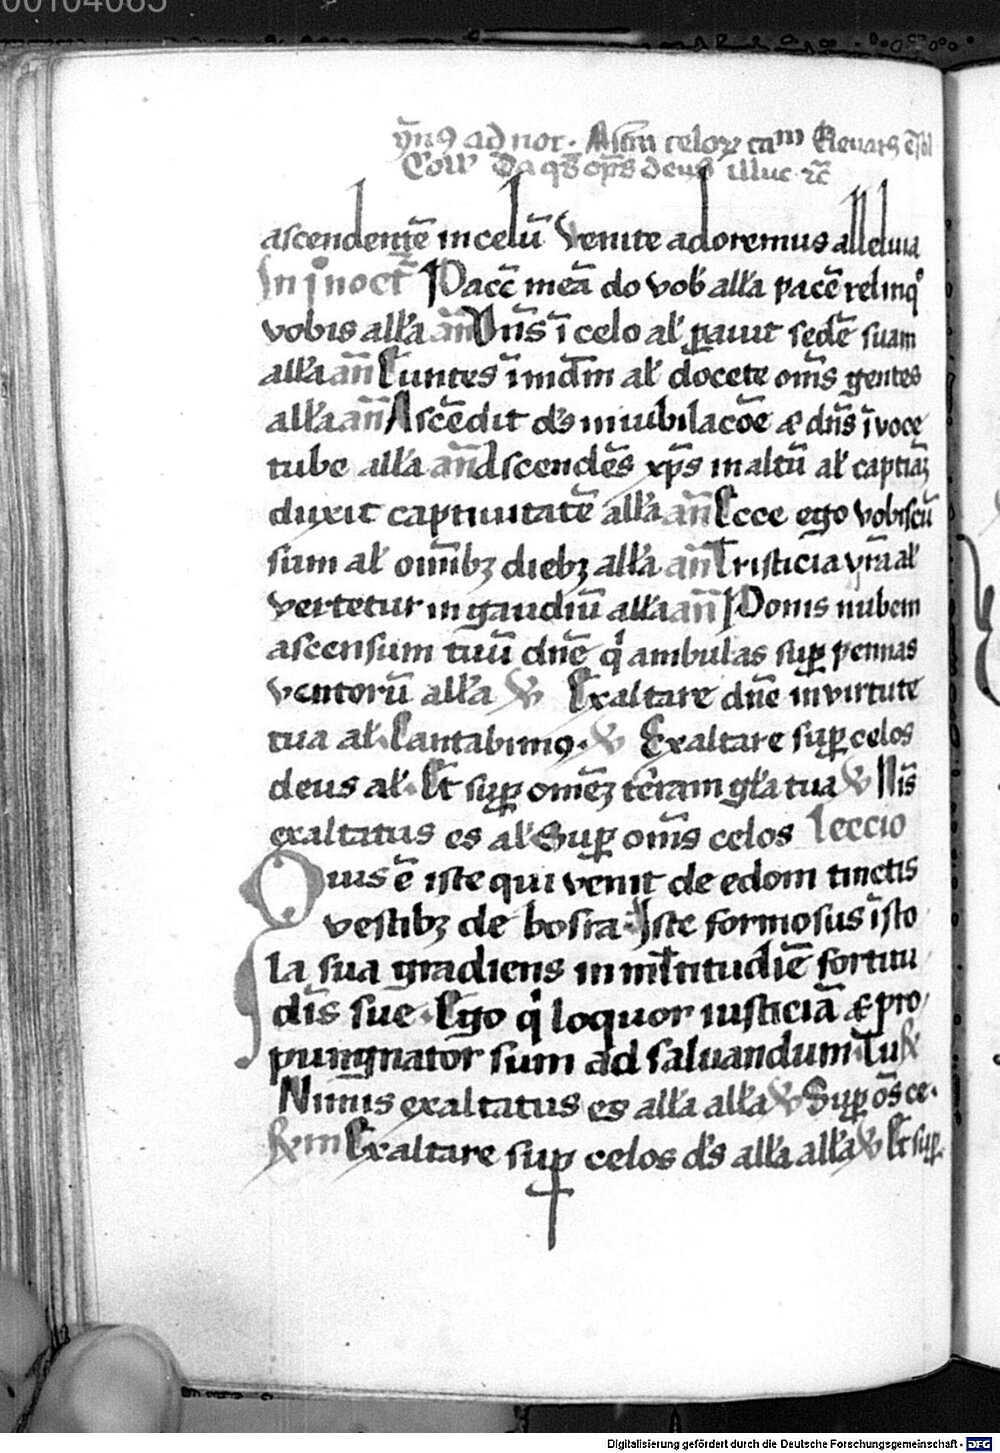 00104065
ẏm̄9 ad noc. Astra celoꝝ
Coll̄ Da qs̄ om̄ps deus illuc ⁊c̄
ascendentē in celū Venite adoremus alleluia
In j noct̄ Pacē meā do vob̄ all̓a pacē relinqͦ
vobis all̓a an̄ Dn̄s ī celo al̓ ꝑauit sedē suam
all̓a an̄ Euntes ī mūdm al̓ docete om̄s gentes
all̓a an̄ Ascēdit ds̄ in iubilacōe & dn̄s ī voce
tube all̓a an̄ Ascendēs xp̄s in altū al̓ captiāꝫ
duxit captiuitatē all̓a an̄ Ecce ego vobiscū
sum al̓ omībꝫ diebꝫ all̓a an̄ Tristicia vr̄a al̓
vertetur in gaudiū all̓a an̄ Ponis nubem
ascensum tuū dn̄e qͥ ambulas suꝑ pennas
ventorū all̓a ꝟ Exaltare dn̄e in virtute
tua al̓. Cantabimꝰ. ꝟ Exaltare suꝑ celos
deus al̓. Et suꝑ omēꝫ terram gl̓a tua ꝟ Nīs
exaltatus es al̓ Suꝑ om̄s celos leccio
Quis ē iste qui venit de edom tinctis
vestibꝫ de bosra. Iste formosus ī sto
la sua gradiens in ml̓titudiē fortitu
dīs sue. Ego qͥ loquor iusticiā & pro
pungnator sum ad saluandum. Tu ꝶ
Nimis exaltatus es all̓a all̓a ꝟ Suꝑ ōs ce.
Exaltare suꝑ celos ds̄ all̓a all̓a ꝟ Et suꝑ
Digitalisierung gefördert durch die Deutsche Forschungsgemeinschaft - DFG